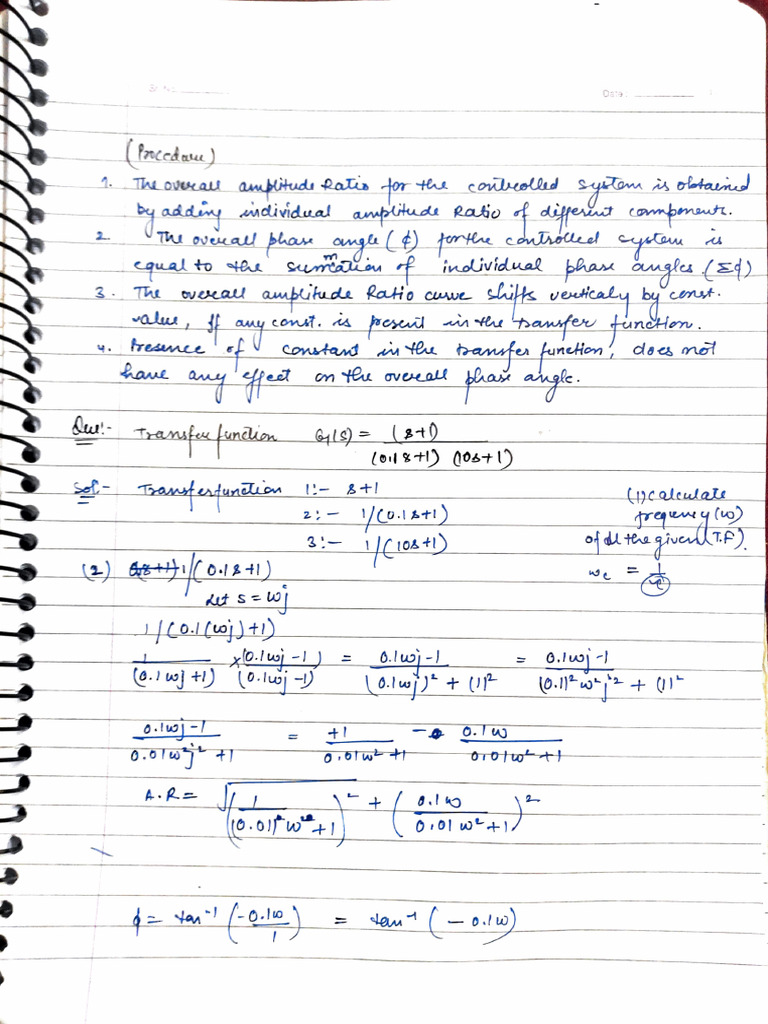 Sr. No.
Date:
(Procedure)
1. The overall amplitude Ratio for the controlled system is obtained
by adding individual amplitude Ratio of different components.
2. The overall phase angle (ϕ) for the controlled system is
equal to the summation of individual phase angles. (Σϕ)
3. The overall amplitude Ratio curve shifts verticaly by const.
value, If any const. is present in the transfer function.
4. Presence of constant in the transfer function, does not
have any effect on the overall phase angle.
Que:- Transfer function G(s) = (s+1) / (0.1s+1) (10s+1)
Sol:- Transfer function 1:- s+1
2:- 1/(0.1s+1)
3:- 1/(10s+1)
(1) calculate
frequency (ω)
of all the given (T.F).
ωc = 1/τ
(2) 1/(0.1s+1)
Let s = ωj
1/(0.1(ωj)+1)
1/(0.1ωj+1) × (0.1ωj-1)/(0.1ωj-1) = 0.1ωj-1/(0.1ωj)² + (1)² = 0.1ωj-1/(0.1)²ω²j² + (1)²
0.1ωj-1/0.01ω²j²+1 = +1/0.01ω²+1 - 0.1ω/0.01ω²+1
A.R = √(1/(0.01)²ω²+1)² + (0.1ω/0.01ω²+1)²
ϕ = tan⁻¹(-0.1ω/1) = tan⁻¹(-0.1ω)